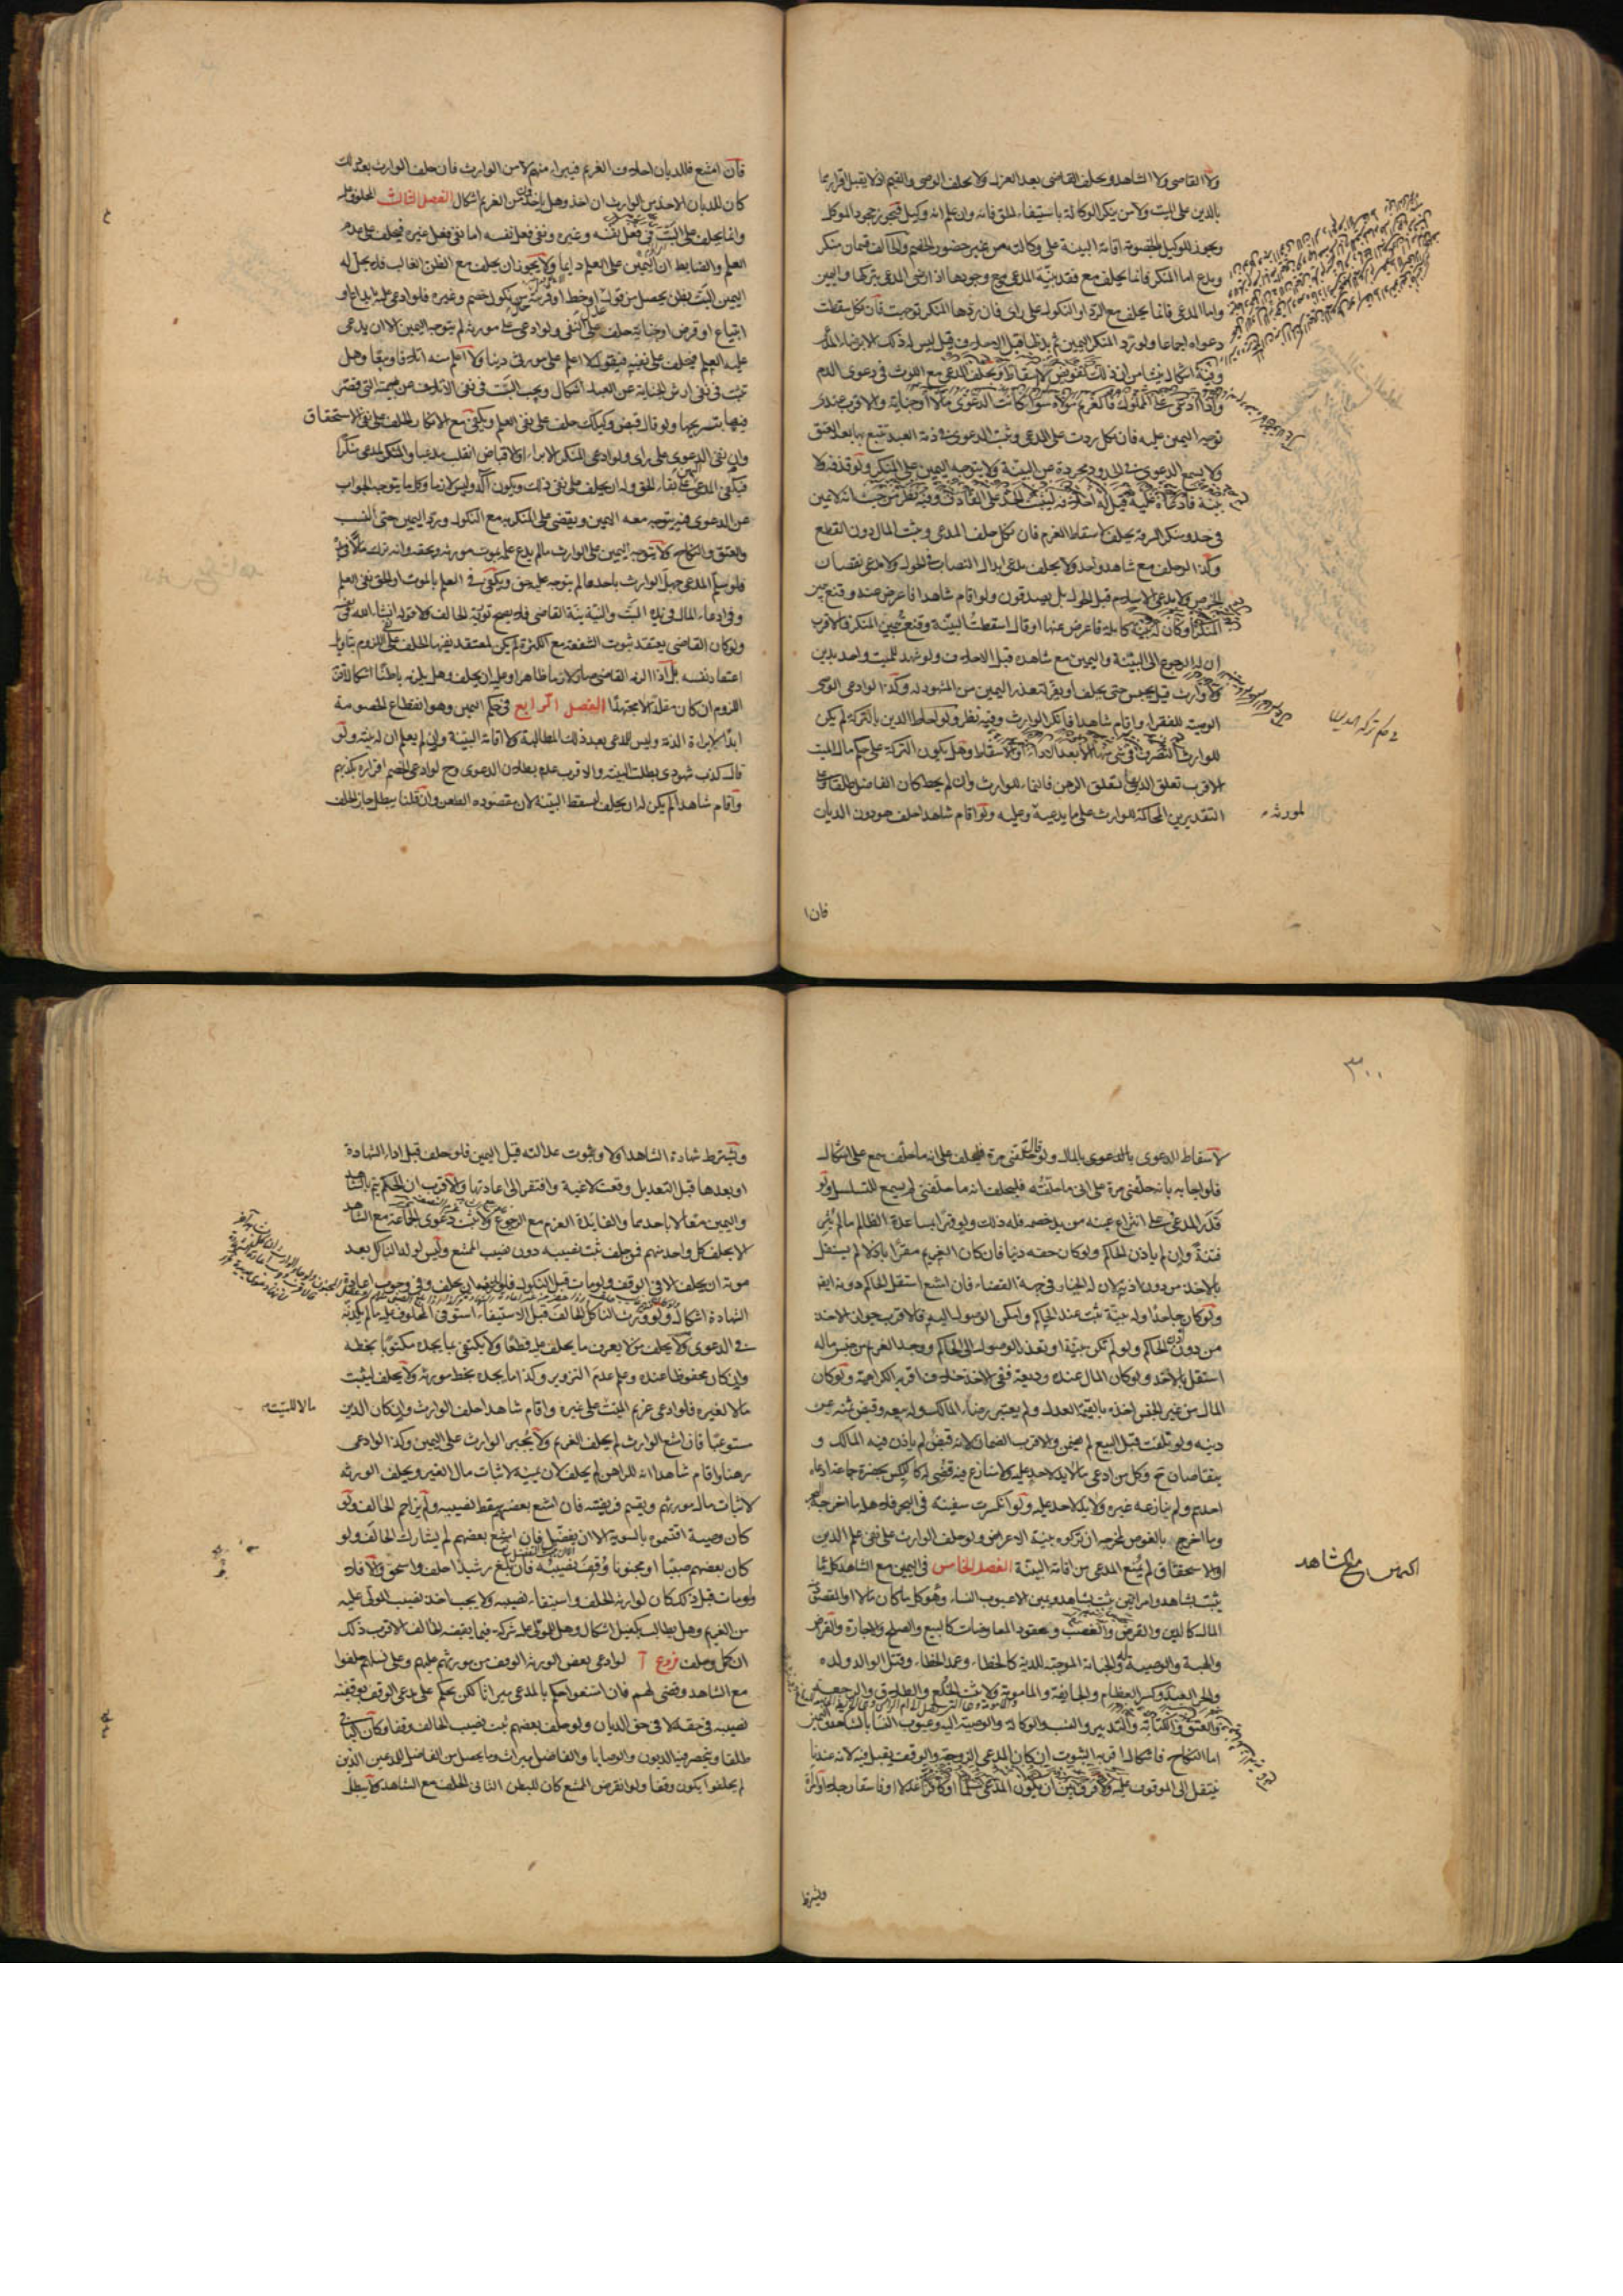 ولا القاضي ولا الشاهد ويحلف القاضي بعد العزل ولا يحلف الوصي والقيم اذ لا يقبل اقرارهما
بالدين على الميت ولا من ينكر الوكالة باستيفاء الحق فانه وان علم انه وكيل فيجوز جحود الموكل
ويجوز للوكيل بالخصومة اقامة البينة على وكالته من غير حضور الخصم والحالف قسمان منكر
ومدع اما المنكر فانما يحلف مع فقد بينة المدعي ومع وجودها اذا رضي المدعي بتركها واليمين
واما المدعي فانما يحلف مع الرد او النكول على راي فان ردها المنكر توجهت فان نكل سقطت
دعواه اجماعا ولو رد المنكر اليمين ثم بذلها قبل الاحلاف قيل ليس له ذلك الا برضاء المدعي
وفيه اشكال ينشا من ان ذلك تفويض لا اسقاط ويحلف المدعي مع اللوث في دعوى الدم
واذا ادعى على المملوك فالغريم مولاه سواء كانت الدعوى مالا او جناية والاقرب عندي
توجه اليمين عليه فان نكل ردت على المدعي وثبت الدعوى في ذمة العبد تتبع بها بعد العتق
ولا يسمع الدعوى في الحدود مجردة عن البينة ولا يتوجه اليمين على المنكر ولو قذفه ولا
بينة فادعاه عليه قيل له احلافه ليثبت الحد على القاذف وفيه نظر من حيث انه لا يمين
في حد ومنكر السرقة يحلف لاسقاط الغرم فان نكل حلف المدعي ويثبت المال دون القطع
وكذا لو حلف مع شاهد واحد ولا يحلف مدعي ابدال النصاب في الحول ولا مدعي نقصان
الخرص ولا مدعي الاسلام قبل الحول بل يصدقون ولو اقام شاهدا فاعرض عنه وقنع بيمين
المنكر او كان له بينة كاملة فاعرض عنها او قال اسقطت البينة وقنعت بيمين المنكر فالاقرب
ان له الرجوع الى البينة واليمين مع شاهده قبل الاحلاف ولو شهد للميت واحد بدين
ولا وارث قيل يحبس حتى يحلف او يقر لتعذر اليمين من المشهود له وكذا لو ادعى الوصي
الوصية للفقراء واقام شاهدا فانكر الوارث وفيه نظر ولو احاط الدين بالتركة لم يكن
للوارث التصرف في شيء منها الا بعد الاداء او الاسقاط وهل يكون التركة على حكم مال الميت
الاقرب تعلق الدين بها تعلق الرهن فالنماء للوارث وان لم يحط كان الفاضل طلقا وعلى
التقديرين المحاكمة للوارث على ما يدعيه وعليه ولو اقام شاهدا حلف هو دون الديان
لمورثه
فان ا
فان امتنع فللديان احلاف الغريم فيبرا منهم لا من الوارث فان حلف الوارث بعد ذلك
كان للديان الاخذ من الوارث ان اخذ وهل ياخذون من الغريم اشكال الفصل الثالث المحلوف عليه
وانما يحلف على البت في فعل نفسه وغيره ونفي فعل نفسه اما نفي فعل غيره فيحلف على عدم
العلم والضابط ان اليمين على العلم دايما ولا يجوز ان يحلف مع الظن الغالب فلا يحل له
اليمين البت بظن يحصل من قول او خط او قرينة من نكول خصم وغيره فلو ادعى عليه بايداع او
ابتياع او قرض او جناية حلف على النفي ولو ادعى على مورثه لم يتوجه اليمين الا ان يدعى
عليه العلم فيحلف على نفيه فيقول لا اعلم على مورثي دينا ولا اعلم منه اتلافا وبيعا وهل
تثبت في نفي ارش الجناية عن العبد اشكال ويجب البت في نفي الاتلاف عن بهيمته التي قصر
فيها بتسريحها ولو قال قبض وكيلك حلف على نفي العلم ويكفي مع الانكار الحلف على نفي الاستحقاق
وان نفى الدعوى على راي ولو ادعى المنكر الابراء او الاقباض انقلب مدعيا والمدعي منكرا
فيكفي المدعي على بقاء الحق وله ان يحلف على نفي ذلك ويكون آكد وليس لازما وكل ما يتوجه الجواب
عن الدعوى فيه يتوجه معه اليمين ويقضى على المنكر به مع النكول ويرد اليمين حتى النسب
والعتق والنكاح ولا يتوجه اليمين على الوارث مالم يدع علمه بموت مورثه وبحقه وانه ترك مالا في يده
فلو سلم المدعي جهل الوارث باحدها لم يتوجه عليه حق ويكفي في العلم بالموت او الحق نفي العلم
وفي ادعاء المال في يده البت والنية نية القاضي فلا يصح تورية الحالف ولا قوله انشاء الله في نفسه
ولو كان القاضي يعتقد ثبوت الشفعة مع الكثرة لم يكن لمعتقد نفيها الحلف على نفي اللزوم بتاويل
اعتقاد نفسه بل اذا الزمه القاضي صار لازما ظاهرا وعليه ان يحلف وهل يلزمه باطنا اشكال اقربه
اللزوم ان كان مقلدا لا مجتهدا الفصل الرابع في حكم اليمين وهو انقطاع الخصومة
ابدا لا براءة الذمة وليس للمدعي بعد ذلك المطالبة ولا اقامة البينة وان لم يعلم ان له بينة ولو
قال كذب شهودي بطلت البينة والاقرب عدم بطلان الدعوى وح لو ادعى الخصم اقراره بكذبهم
واقام شاهدا لم يكن له ان يحلف ليسقط البينة لان مقصوده الطعن وان قلنا يبطل جاز الحلف
٣٠٠
لاسقاط الدعوى بالمال ولو قال حلفني مرة فليحلف على انه ما حلف سمع على اشكال
فلو اجابه بانه حلفني مرة على اني ما حلفته فليحلف انه ما حلفني لم يسمع للتسلسل ولو
قدر المدعي على انتزاع عينه من يد خصمه فله ذلك ولو قهرا بمساعدة الظالم مالم يثر
فتنة وان لم ياذن الحاكم ولو كان حقه دينا فان كان الغريم مقرا باذلا لم يستقل
بالاخذ من دون اذنه لان له الخيار في جهة القضاء فان امتنع استقل الحاكم دونه ايضا
ولو كان جاحدا وله بينة تثبت عند الحاكم وامكن الوصول اليه فالاقرب جواز الاخذ
من دون اذن الحاكم ولو لم تكن بينة او تعذر الوصول الى الحاكم ووجد الغريم من جنس ماله
استقل بالاخذ ولو كان المال عنده وديعة ففي الاخذ خلاف اقربه الكراهية ولو كان
المال من غير الجنس اخذه بالقيمة العدل ولم يعتبر رضاء المالك وله بيعه وقبض ثمنه عن
دينه ولو تلفت قبل البيع لم يضمن والاقرب الضمان لانه قبض لم ياذن فيه المالك و
يتقاصان ح وكل من ادعى ما لا يد لاحد عليه ولا منازع فيه قضي له كالكيس بحضرة جماعة ادعاه
احدهم ولم ينازعه غيره ولا يد لاحد عليه ولو انكسرت سفينة في البحر فلاهله ما اخرجه البحر
وما اخرج بالغوص لمخرجه ان تركوه بنية الاعراض ولو حلف الوارث على نفي علم الدين
او الاستحقاق لم يمنع المدعي من اقامة البينة الفصل الخامس في اليمين مع الشاهد كلما
يثبت بشاهد وامراتين يثبت بشاهد ويمين الا عيوب النساء وهو كل ما كان مالا او المقصود منه
المال كالدين والقرض والغصب وعقود المعاوضات كالبيع والصلح والاجارة والقراض
والهبة والوصية له والجناية الموجبة للدية كالخطاء وعمد الخطاء وقتل الوالد ولده
والحر العبد وكسر العظام والجايفة والمامومة ولا يثبت الخلع والطلاق والرجعة
والعتق والكتابة والتدبير والنسب والوكالة والوصية اليه وعيوب النساء بالشاهد واليمين
اما النكاح فاشكال اقربه الثبوت ان كان المدعي الزوجة والوقف يقبل فيه لانه عندنا
ينتقل الى الموقوف عليه ولا فرق بين ان يكون المدعي مسلما او كافرا عدلا او فاسقا رجلا او امراة
اليمين مع الشاهد
ويشترط
ويشترط شهادة الشاهد اولا وثبوت عدالته قبل اليمين فلو حلف قبل اداء الشهادة
او بعدها قبل التعديل وقعت لاغية وافتقر الى اعادتها والاقرب ان الحكم يتم بالشاهد
واليمين معا لا باحدهما والفايدة الغرم مع الرجوع ولا يثبت دعوى الجماعة مع الشاهد
الا بحلف كل واحد منهم فمن حلف ثبت نصيبه دون نصيب الممتنع وليس لولد الناكل بعد
موته ان يحلف الا في الوقف ولو مات قبل النكول فلوارثه ان يحلف وفي وجوب اعادة
الشهادة اشكال ولو ورث الناكل الحالف قبل الاستيفاء استوفى المحلوف عليه مالم يكذبه
في الدعوى ولا يحلف من لا يعرف ما يحلف عليه قطعا ولا يكتفي بما يجده مكتوبا بخطه
وان كان محفوظا عنده وعلم عدم التزوير وكذا ما يجده بخط مورثه ولا يحلف ليثبت
مالا لغيره فلو ادعى غريم الميت على غيره واقام شاهدا حلف الوارث وان كان الدين
مالا للميت
مستوعبا فان امتنع الوارث لم يحلف الغريم ولا يجبر الوارث على اليمين وكذا لو ادعى
رهنا واقام شاهدا انه للراهن لم يحلف لان يمينه لاثبات مال الغير ويحلف الورثة
لاثبات مال مورثهم ويقسم فريضته فان امتنع بعضهم سقط نصيبه ولم يزاحم الحالف ولو
كان وصية اقتسموه بالسوية الا ان يفضل فان امتنع بعضهم لم يشارك الحالف ولو
كان بعضهم صبيا او مجنونا وقف نصيبه فان بلغ رشيدا حلف واستحق والا فلا
ولو مات قبل ذلك كان لوارثه الحلف واستيفاء نصيبه ولا يجب اخذ نصيب المولى عليه
من الغريم وهل يطالب بكفيل اشكال وهل للمولى عليه شركة فيما يقبضه الحالف الاقرب ذلك
ان كمل وحلف فروع آ لو ادعى بعض الورثة الوقف من مورثهم عليهم وعلى نسلهم حلفوا
مع الشاهد وقضي لهم فان امتنعوا حكم بالمدعي ميراثا لكن يحكم على مدعي الوقف بوقفية
نصيبه في حقه لا في حق الديان ولو حلف بعضهم ثبت نصيب الحالف وقفا وكان الباقي
طلقا ويخرج منه الديون والوصايا والفاضل ميراث وما يحصل من الفاضل للمدعين الذين
لم يحلفوا يكون وقفا ولو انقرض الممتنع كان للبطن الثاني الحلف مع الشاهد ولا يبطل